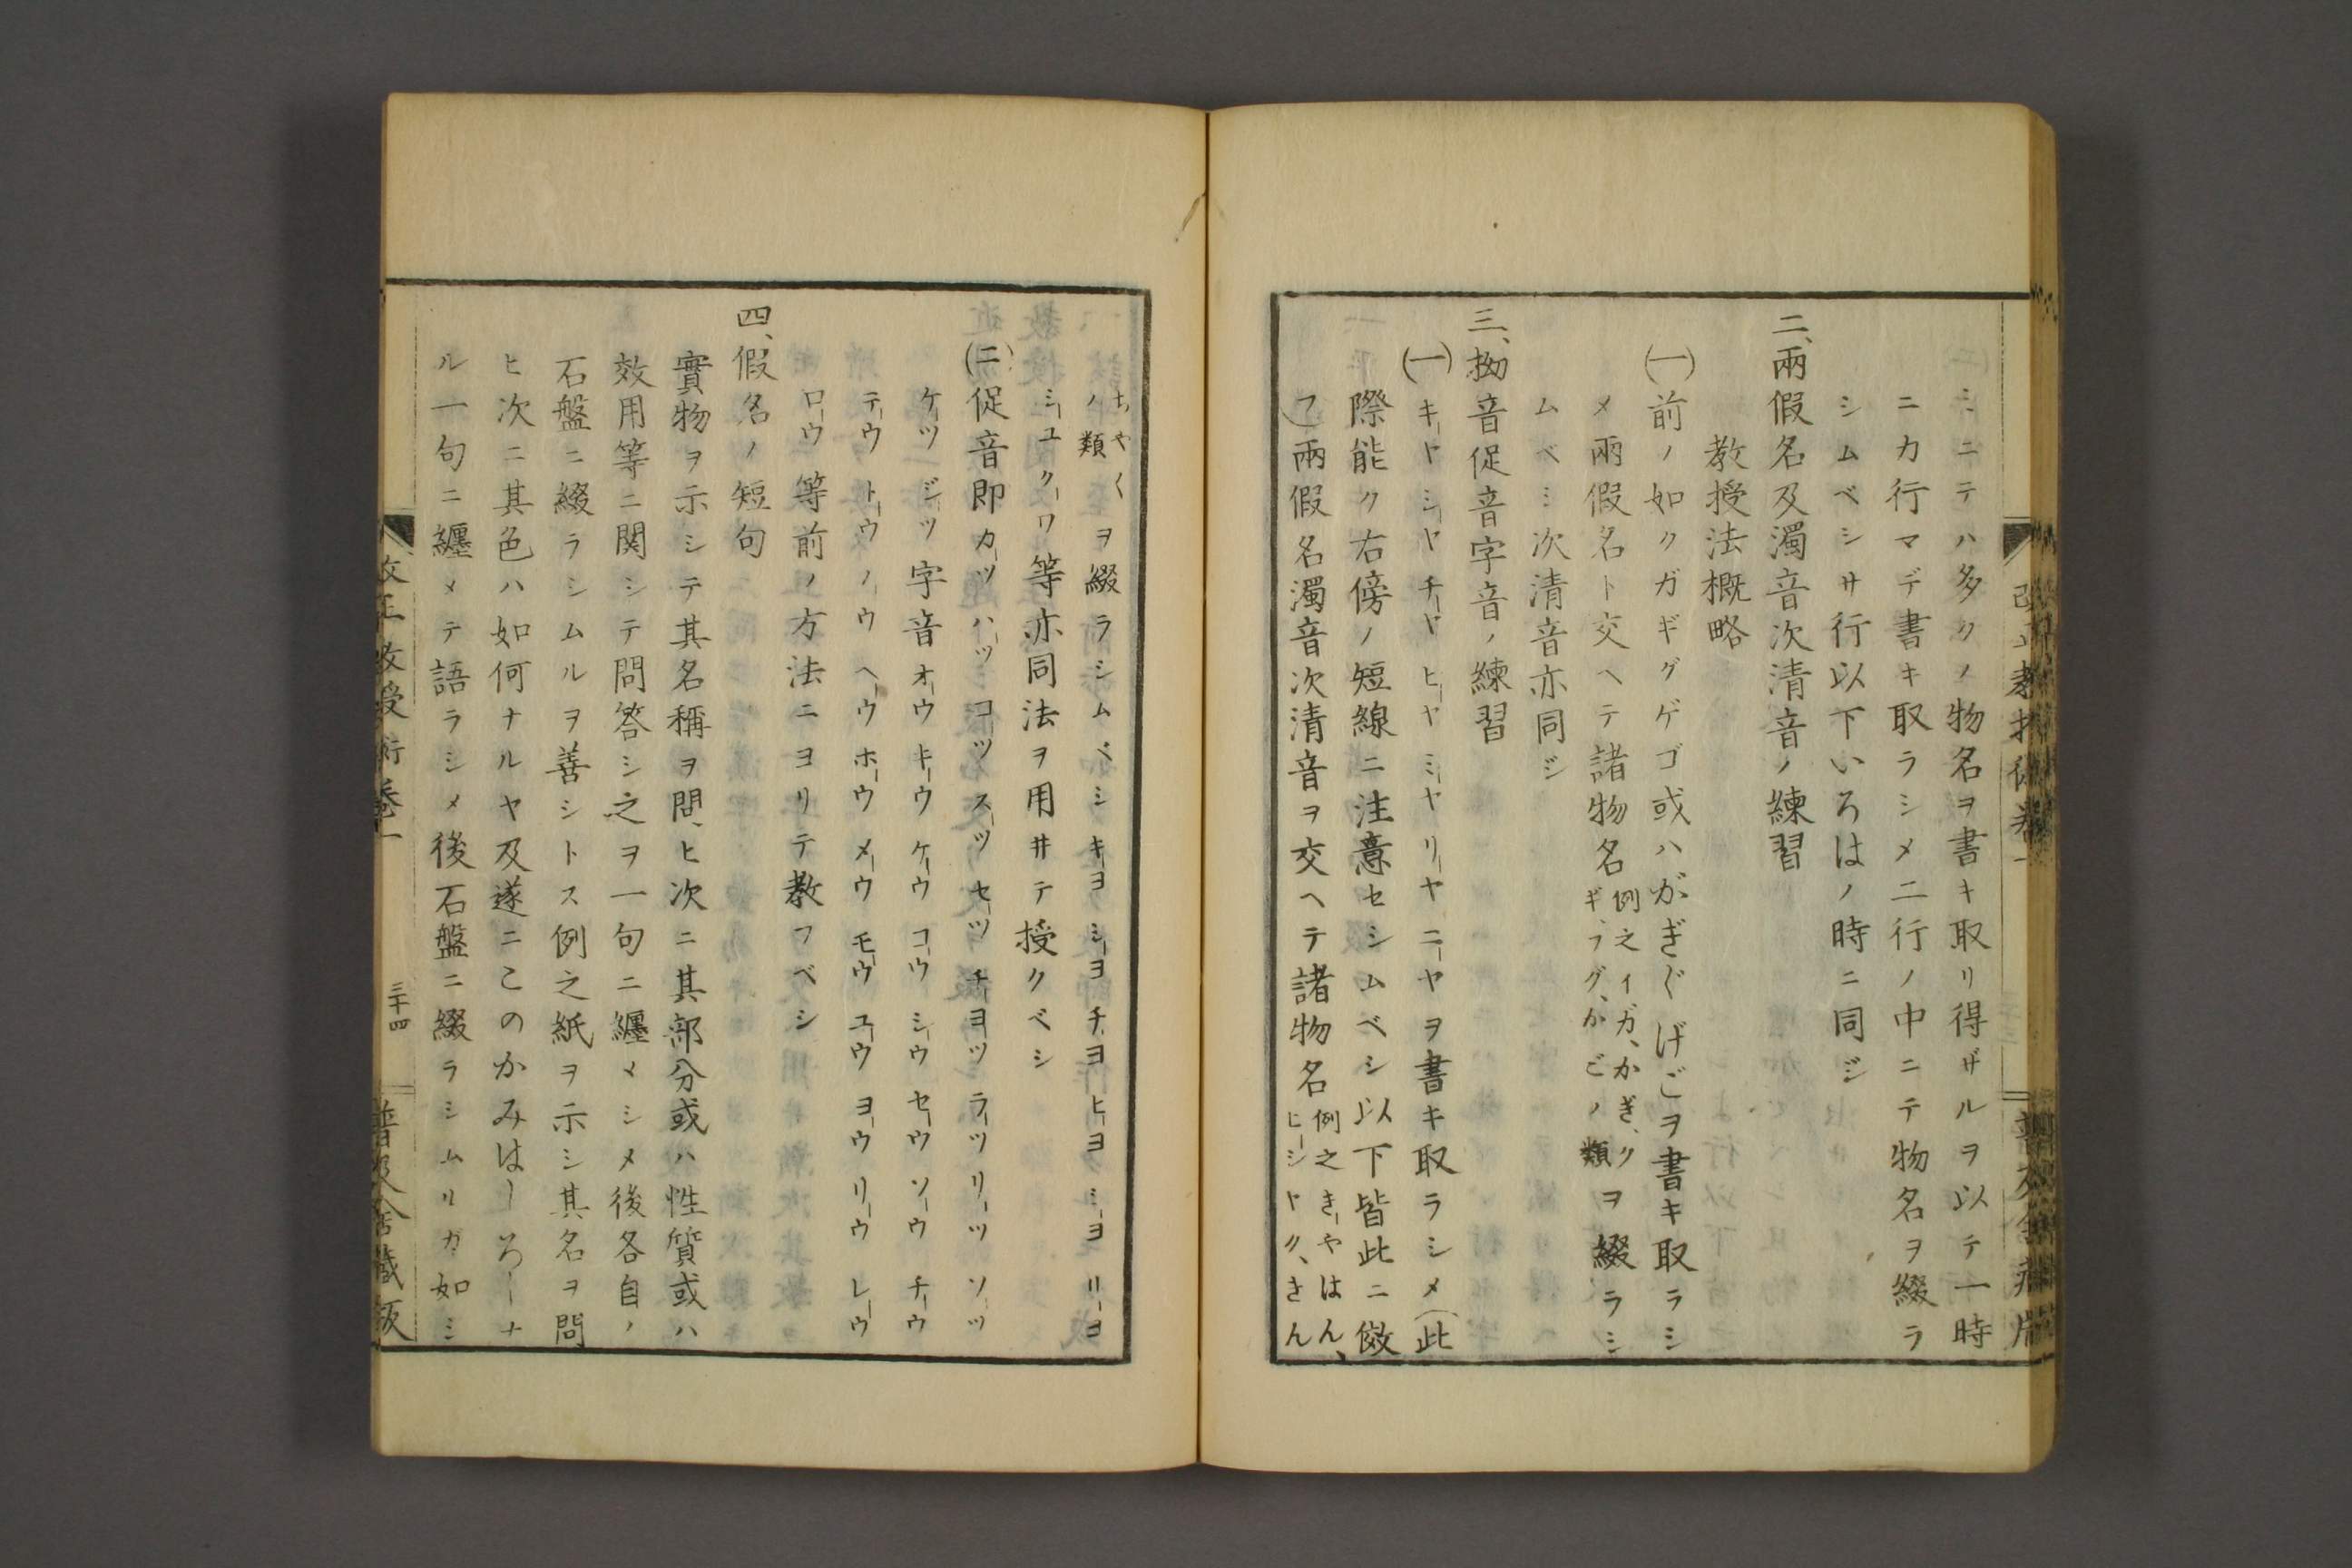 ミニテハ多クノ物名ヲ書キ取リ得ザルヲ以テ一時
ニカ行マデ書キ取ラシメ二行ノ中ニテ物名ヲ綴ラ
シムベシサ行以下いろはノ時ニ同ジ
二、兩假名及濁音次清音ノ練習
教授法概略
(一)前ノ如クガギグゲゴ或ハがぎぐげごヲ書キ取ラシ
メ兩假名ト交ヘテ諸物名例之イガ、かぎ、ク
ギ、フグ、かごノ類ヲ綴ラシ
ムベシ次清音亦同ジ
三、拗音促音字音ノ練習
(一)キーヤシーヤチーヤヒーヤミーヤリーヤニーヤヲ書キ取ラシメ(此
際能ク右傍ノ短線ニ注意セシムベシ以下皆此ニ傚
フ)兩假名濁音次清音ヲ交ヘテ諸物名例之きーやはん、
ヒーシヤク、きん
ちやくヲ綴ラシムベシキーヨシーヨチーヨヒーヨミーヨリーヨ
ノ類
シーユクーワ等亦同法ヲ用井テ授クベシ
(二)促音即カーツハーツコーツスーツセーツチーヨツラーツリーツソーツ
ケーツジーツ字音オーウキーウケーウコーウシーウセーウソーウチーウ
テーウトーウノーウヘーウホーウメーウモーウユーウヨーウリーウレーウ
ローウ等前ノ方法ニヨリテ教フベシ
四、假名ノ短句
實物ヲ示シテ其名稱ヲ問ヒ次ニ其部分或ハ性質或ハ
效用等ニ関シテ問答シ之ヲ一句ニ纒メシメ後各自ノ
石盤ニ綴ラシムルヲ善シトス例之紙ヲ示シ其名ヲ問
ヒ次ニ其色ハ如何ナルヤ及遂ニこのかみはしろしナ
ル一句ニ纒メテ語ラシメ後石盤ニ綴ラシムルガ如シ
改正教授術卷一
三十四
普及舍藏版